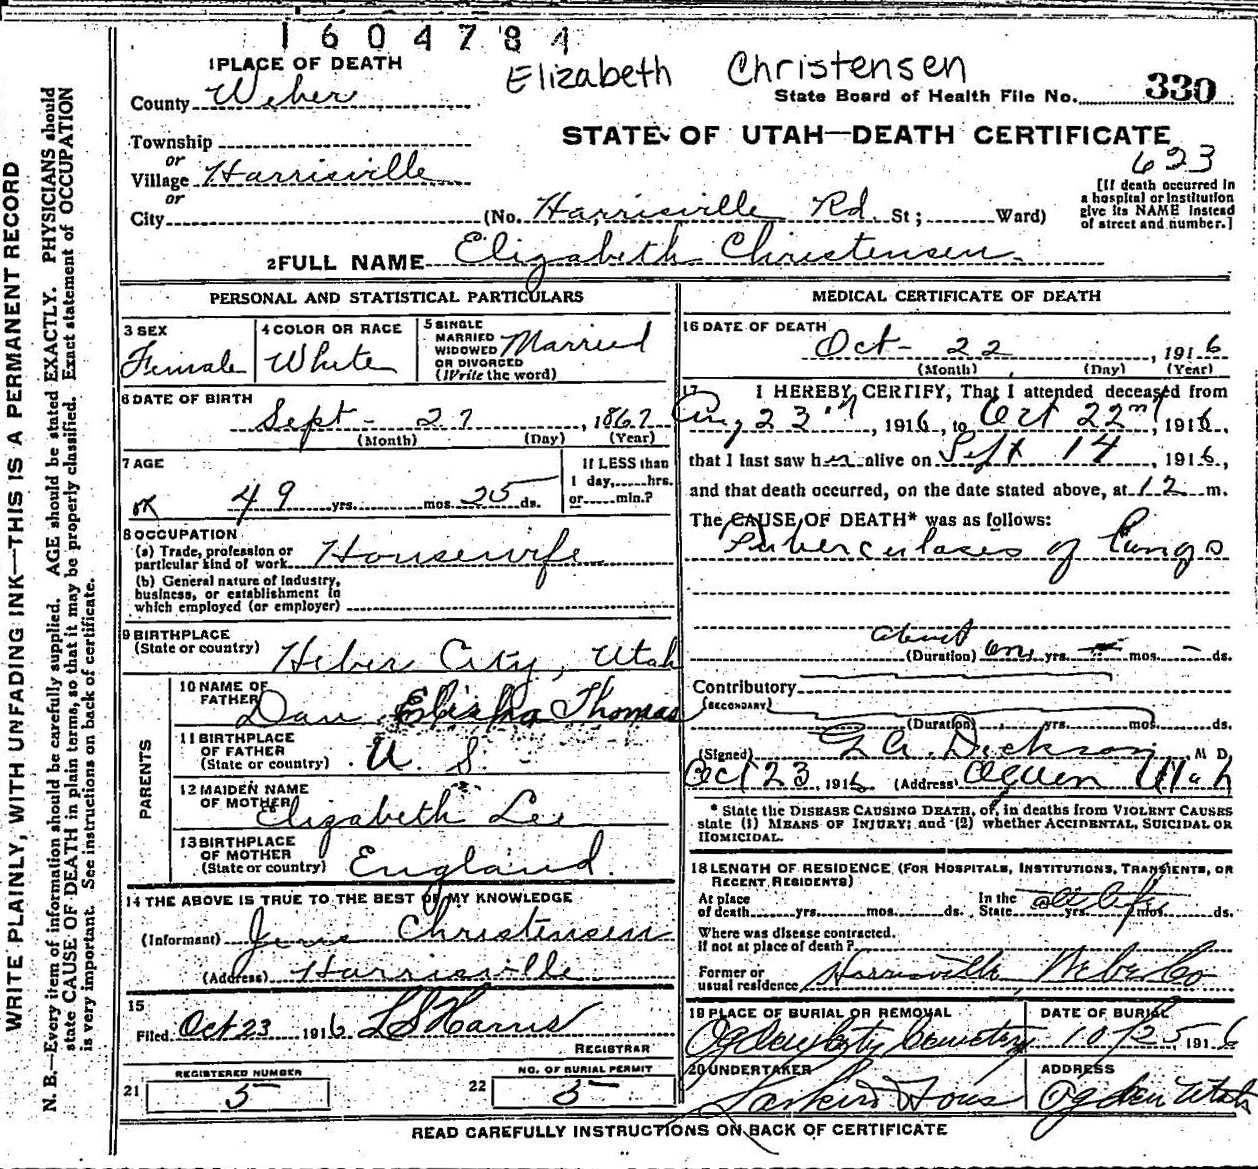 1604784
Elizabeth Christensen
1 PLACE OF DEATH
County Weber
State Board of Health File No. 330
Township
STATE OF UTAH—DEATH CERTIFICATE
or
Village Harrisville
623
or
City (No. Harrisville Rd. St; Ward)
[If death occurred in
a hospital or institution
give its NAME instead
of street and number.]
2 FULL NAME Elizabeth Christensen
PERSONAL AND STATISTICAL PARTICULARS
3 SEX
Female
4 COLOR OR RACE
White
5 SINGLE
MARRIED
WIDOWED
OR DIVORCED
(Write the word)
Married
6 DATE OF BIRTH
Sept - 27, 1867
(Month) (Day) (Year)
7 AGE
49 yrs. mos. 25 ds.
If LESS than
1 day, hrs.
or min.?
8 OCCUPATION
(a) Trade, profession or
particular kind of work Housewife
(b) General nature of industry,
business, or establishment in
which employed (or employer)
9 BIRTHPLACE
(State or country) Heber City, Utah
PARENTS
10 NAME OF
FATHER Dan Elisha Thomas
11 BIRTHPLACE
OF FATHER
(State or country) U. S.
12 MAIDEN NAME
OF MOTHER Elizabeth Lee
13 BIRTHPLACE
OF MOTHER
(State or country) England.
14 THE ABOVE IS TRUE TO THE BEST OF MY KNOWLEDGE
(Informant) Christensen
(Address) Harrisville
15
Filed Oct 23 1916 L S Harris
REGISTRAR
REGISTERED NUMBER
21 5
NO. OF BURIAL PERMIT
22 5
MEDICAL CERTIFICATE OF DEATH
16 DATE OF DEATH
Oct - 22, 1916
(Month) (Day) (Year)
17 I HEREBY CERTIFY, That I attended deceased from
Aug 23rd, 1916, to Oct 22nd, 1916,
that I last saw her alive on Sept 14, 1916,
and that death occurred, on the date stated above, at 12 m.
The CAUSE OF DEATH* was as follows:
Tuberculases of Lungs
about
(Duration) one yrs. mos. - ds.
Contributory
(SECONDARY)
(Duration) yrs. mos. ds.
(Signed) Dickson M D.
Oct 23, 1916 (Address) Ogden Utah
* State the DISEASE CAUSING DEATH, or, in deaths from VIOLENT CAUSES
state (1) MEANS OF INJURY; and (2) whether ACCIDENTAL, SUICIDAL OR
HOMICIDAL.
18 LENGTH OF RESIDENCE (FOR HOSPITALS, INSTITUTIONS, TRANSIENTS, OR
RECENT RESIDENTS)
At place
of death yrs. mos. ds.
In the
State all life yrs. mos. ds.
Where was disease contracted.
if not at place of death?
Former or
usual residence Harrisville Weber Co
19 PLACE OF BURIAL OR REMOVAL
Ogden City Cemetery
DATE OF BURIAL
10/25, 1916
20 UNDERTAKER
Larkin & Sons
ADDRESS
Ogden Utah
READ CAREFULLY INSTRUCTIONS ON BACK OF CERTIFICATE
WRITE PLAINLY, WITH UNFADING INK—THIS IS A PERMANENT RECORD
N. B.—Every item of information should be carefully supplied. AGE should be stated EXACTLY. PHYSICIANS should
state CAUSE OF DEATH in plain terms, so that it may be properly classified. Exact statement of OCCUPATION
is very important. See instructions on back of certificate.